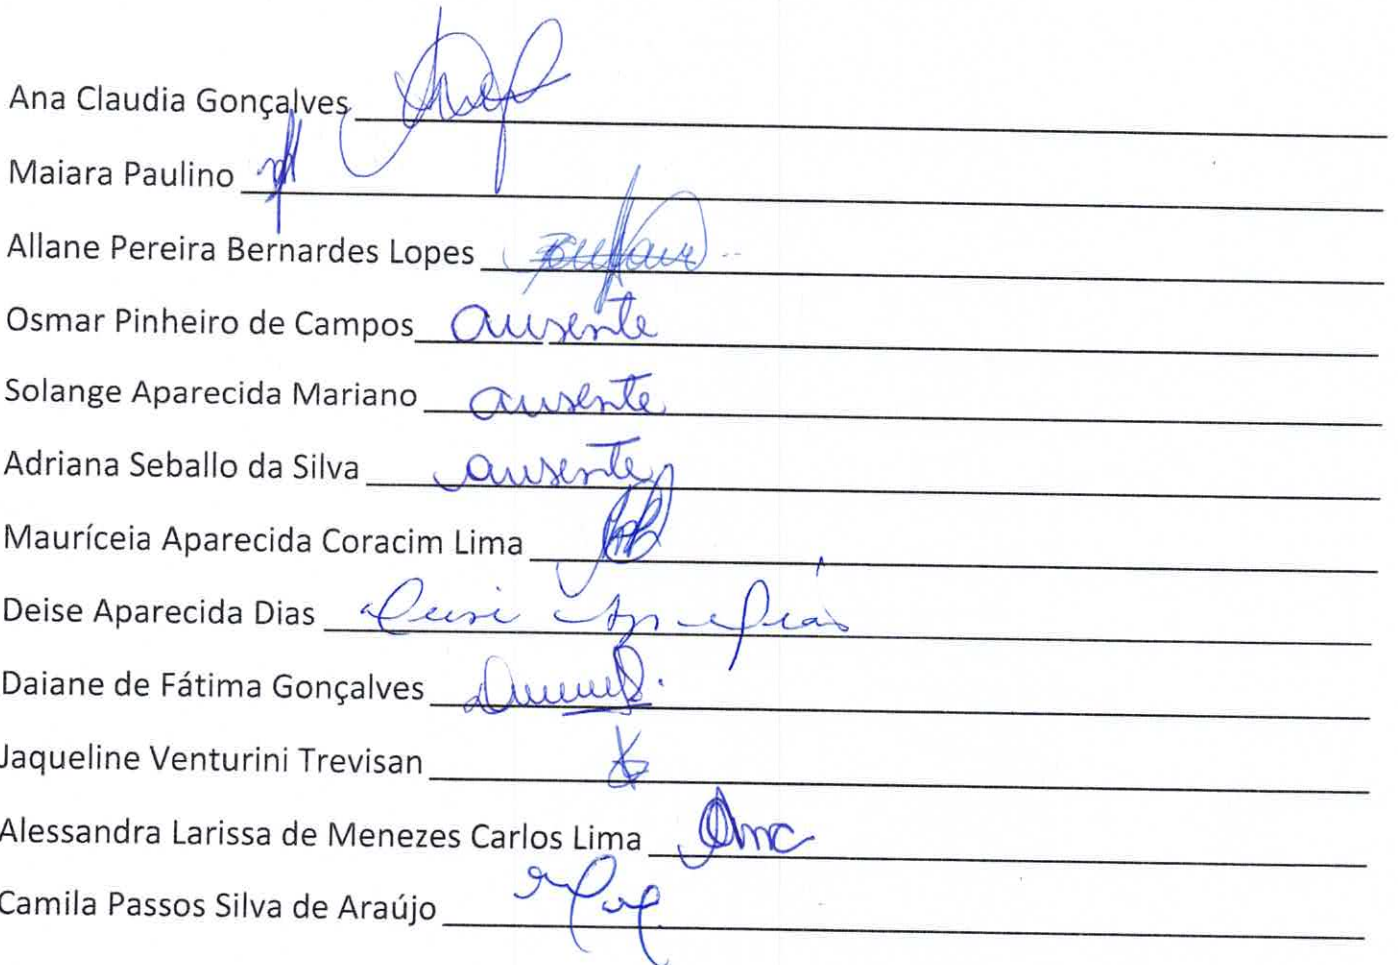 Ana Claudia Gonçalves
Maiara Paulino
Allane Pereira Bernardes Lopes
Osmar Pinheiro de Campos ausente
Solange Aparecida Mariano ausente
Adriana Seballo da Silva ausente
Mauríceia Aparecida Coracim Lima
Deise Aparecida Dias
Daiane de Fátima Gonçalves
Jaqueline Venturini Trevisan
Alessandra Larissa de Menezes Carlos Lima
Camila Passos Silva de Araújo